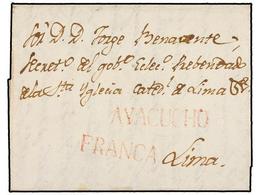 Sõr D. D. Jorge Benavente,
Secret.º del gob.º Ecles.º Prebendad
de la S.ta Iglesia Cated.l de Lima &.
AYACUCHO
FRANCA Lima.